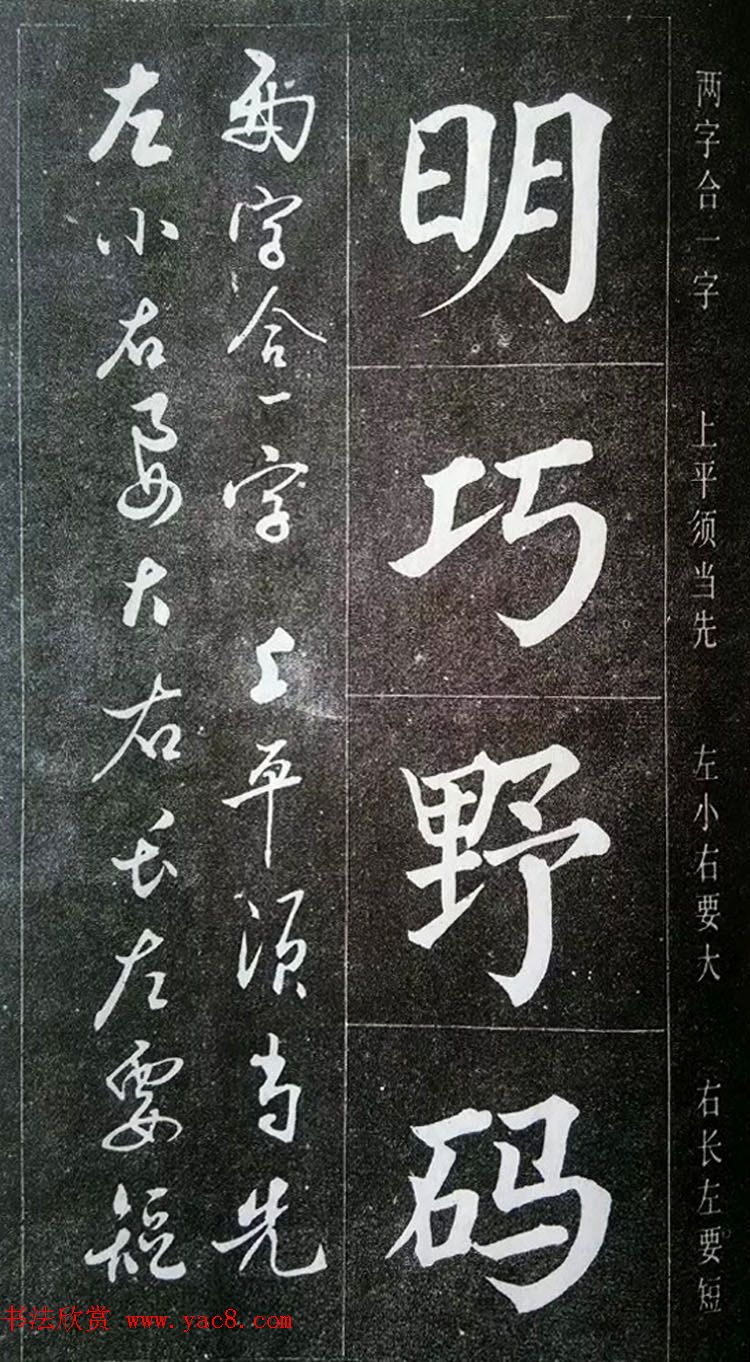 两字合一字 上平须当先 左小右要大 右长左要短
明巧野码
两字合一字上平须当先
左小右要大右长左要短
书法欣赏 www.yac8.com